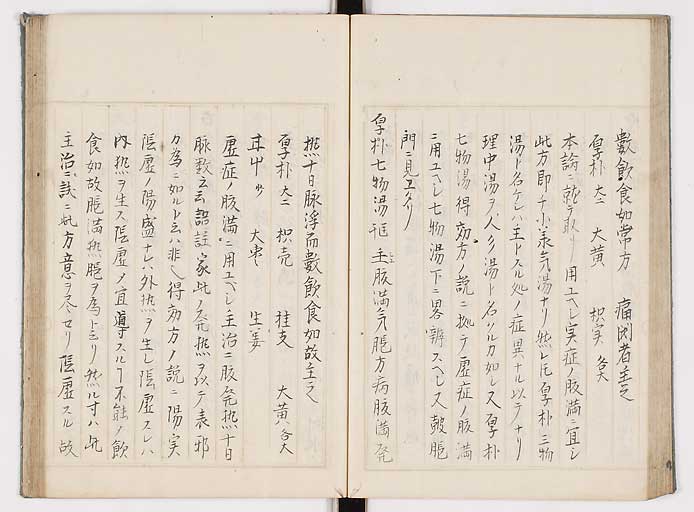 數飲食如常方　痛閉者主之
厚朴 大　大黄　枳実 各大
本論ニ就テ取リ用ユヘシ実症ノ腹満ニ宜シ
此方即チ小承気湯ナリ然レ𪜈厚朴三物
湯ト名ケレハ主トスル処ノ症異ナル以テナリ
理中湯ヲ人参湯ト名ツルカ如シ又厚朴
七物湯得効方ノ説ニ拠テ虚症ノ腹満
ニ用ユヘシ七物湯下ニ畧辨スヘシ又皷脹
門ニ見エタリ
厚朴七物湯 主腹満気脹方病腹満発
熱十日脉浮而數飲食如故主之
厚朴 大　枳壳　桂支　大黄 各大
甘艸 少　大棗　生姜
虚症ノ腹満ニ用ユヘシ主治ニ腹発熱十日
脉數云云註家此ノ発熱ヲ以テ表邪
ノ為ニ如ルト云ハ非也得効方ノ説ニ陽実
陰虚ノ陽盛ナレハ外熱ヲ生シ陰虚スレハ
内熱ヲ生ス陰虚メ宣導スルヿ不能ノ飲
食如故脹満熱脹ヲ為ト云リ然ル寸ハ此
主治ニ此方意ヲ尽セリ陰虚スル故